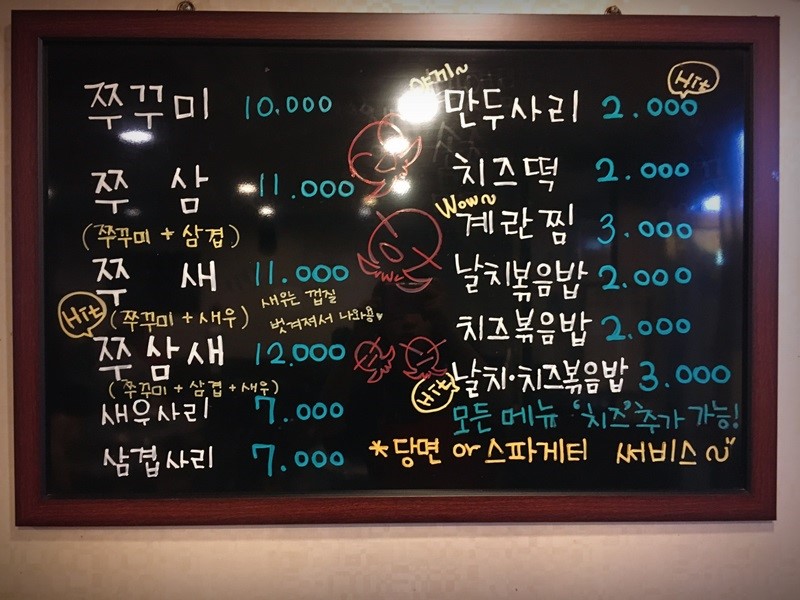 쭈꾸미 10.000
쭈 삼 11.000
(쭈꾸미 + 삼겹)
쭈 새 11.000
(쭈꾸미 + 새우)
새우는 껍질
벗겨져서 나와용♥
Hit
쭈삼새 12.000
(쭈꾸미 + 삼겹 + 새우)
새우사리 7.000
삼겹사리 7.000
Hit
만두사리 2.000
치즈떡 2.000
Wow~
계란찜 3.000
날치볶음밥 2.000
치즈볶음밥 2.000
Hit!
날치·치즈볶음밥 3.000
모든 메뉴 '치즈' 추가 가능!
*당면 or 스파게티 써비스~